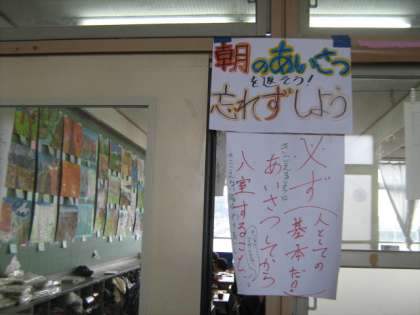 朝のあいさつ
を返そう!
忘れずしよう
必ず(人としての基本だ!!)
きこえるように
あいさつしてから
入室すること。